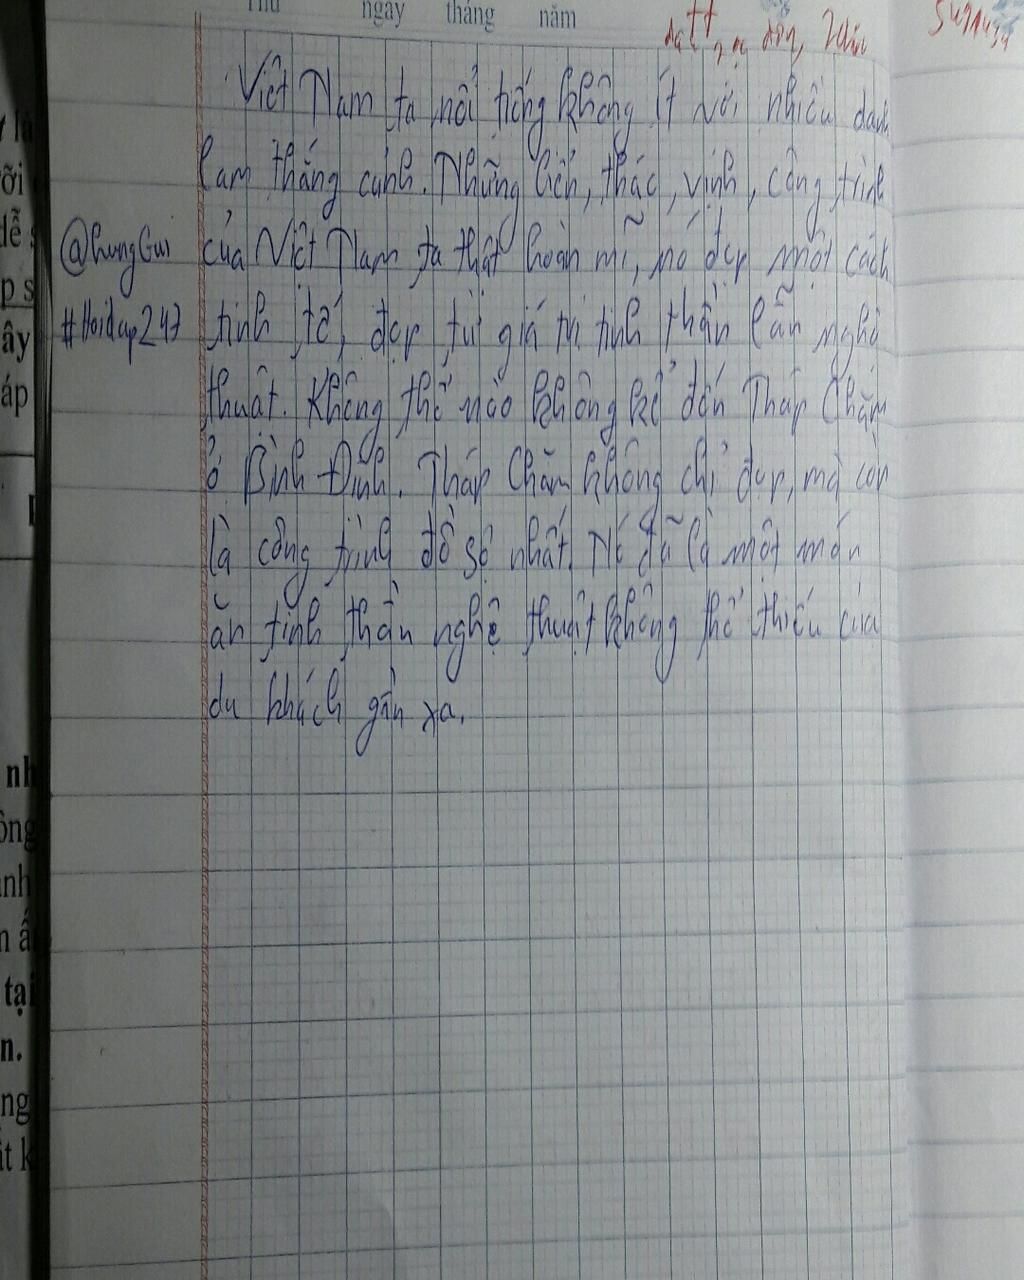 Thứ ngày tháng năm
Việt Nam ta nổi tiếng không ít với nhiều danh
lam thắng cảnh. Những biển, thác, vịnh, công trình
@hungGui của Việt Nam ta thật hoàn mĩ, nó đẹp một cách
#Hoidap247 tinh tế, đẹp từ giá trị tinh thần lẫn nghệ
thuật. Không thể nào không kể đến Tháp Chăm
ở Bình Định. Tháp Chăm không chỉ đẹp, mà còn
là công trình đồ sộ nhất. Nó đã là một món
ăn tinh thần nghệ thuật không thể thiếu của
du khách gần xa.